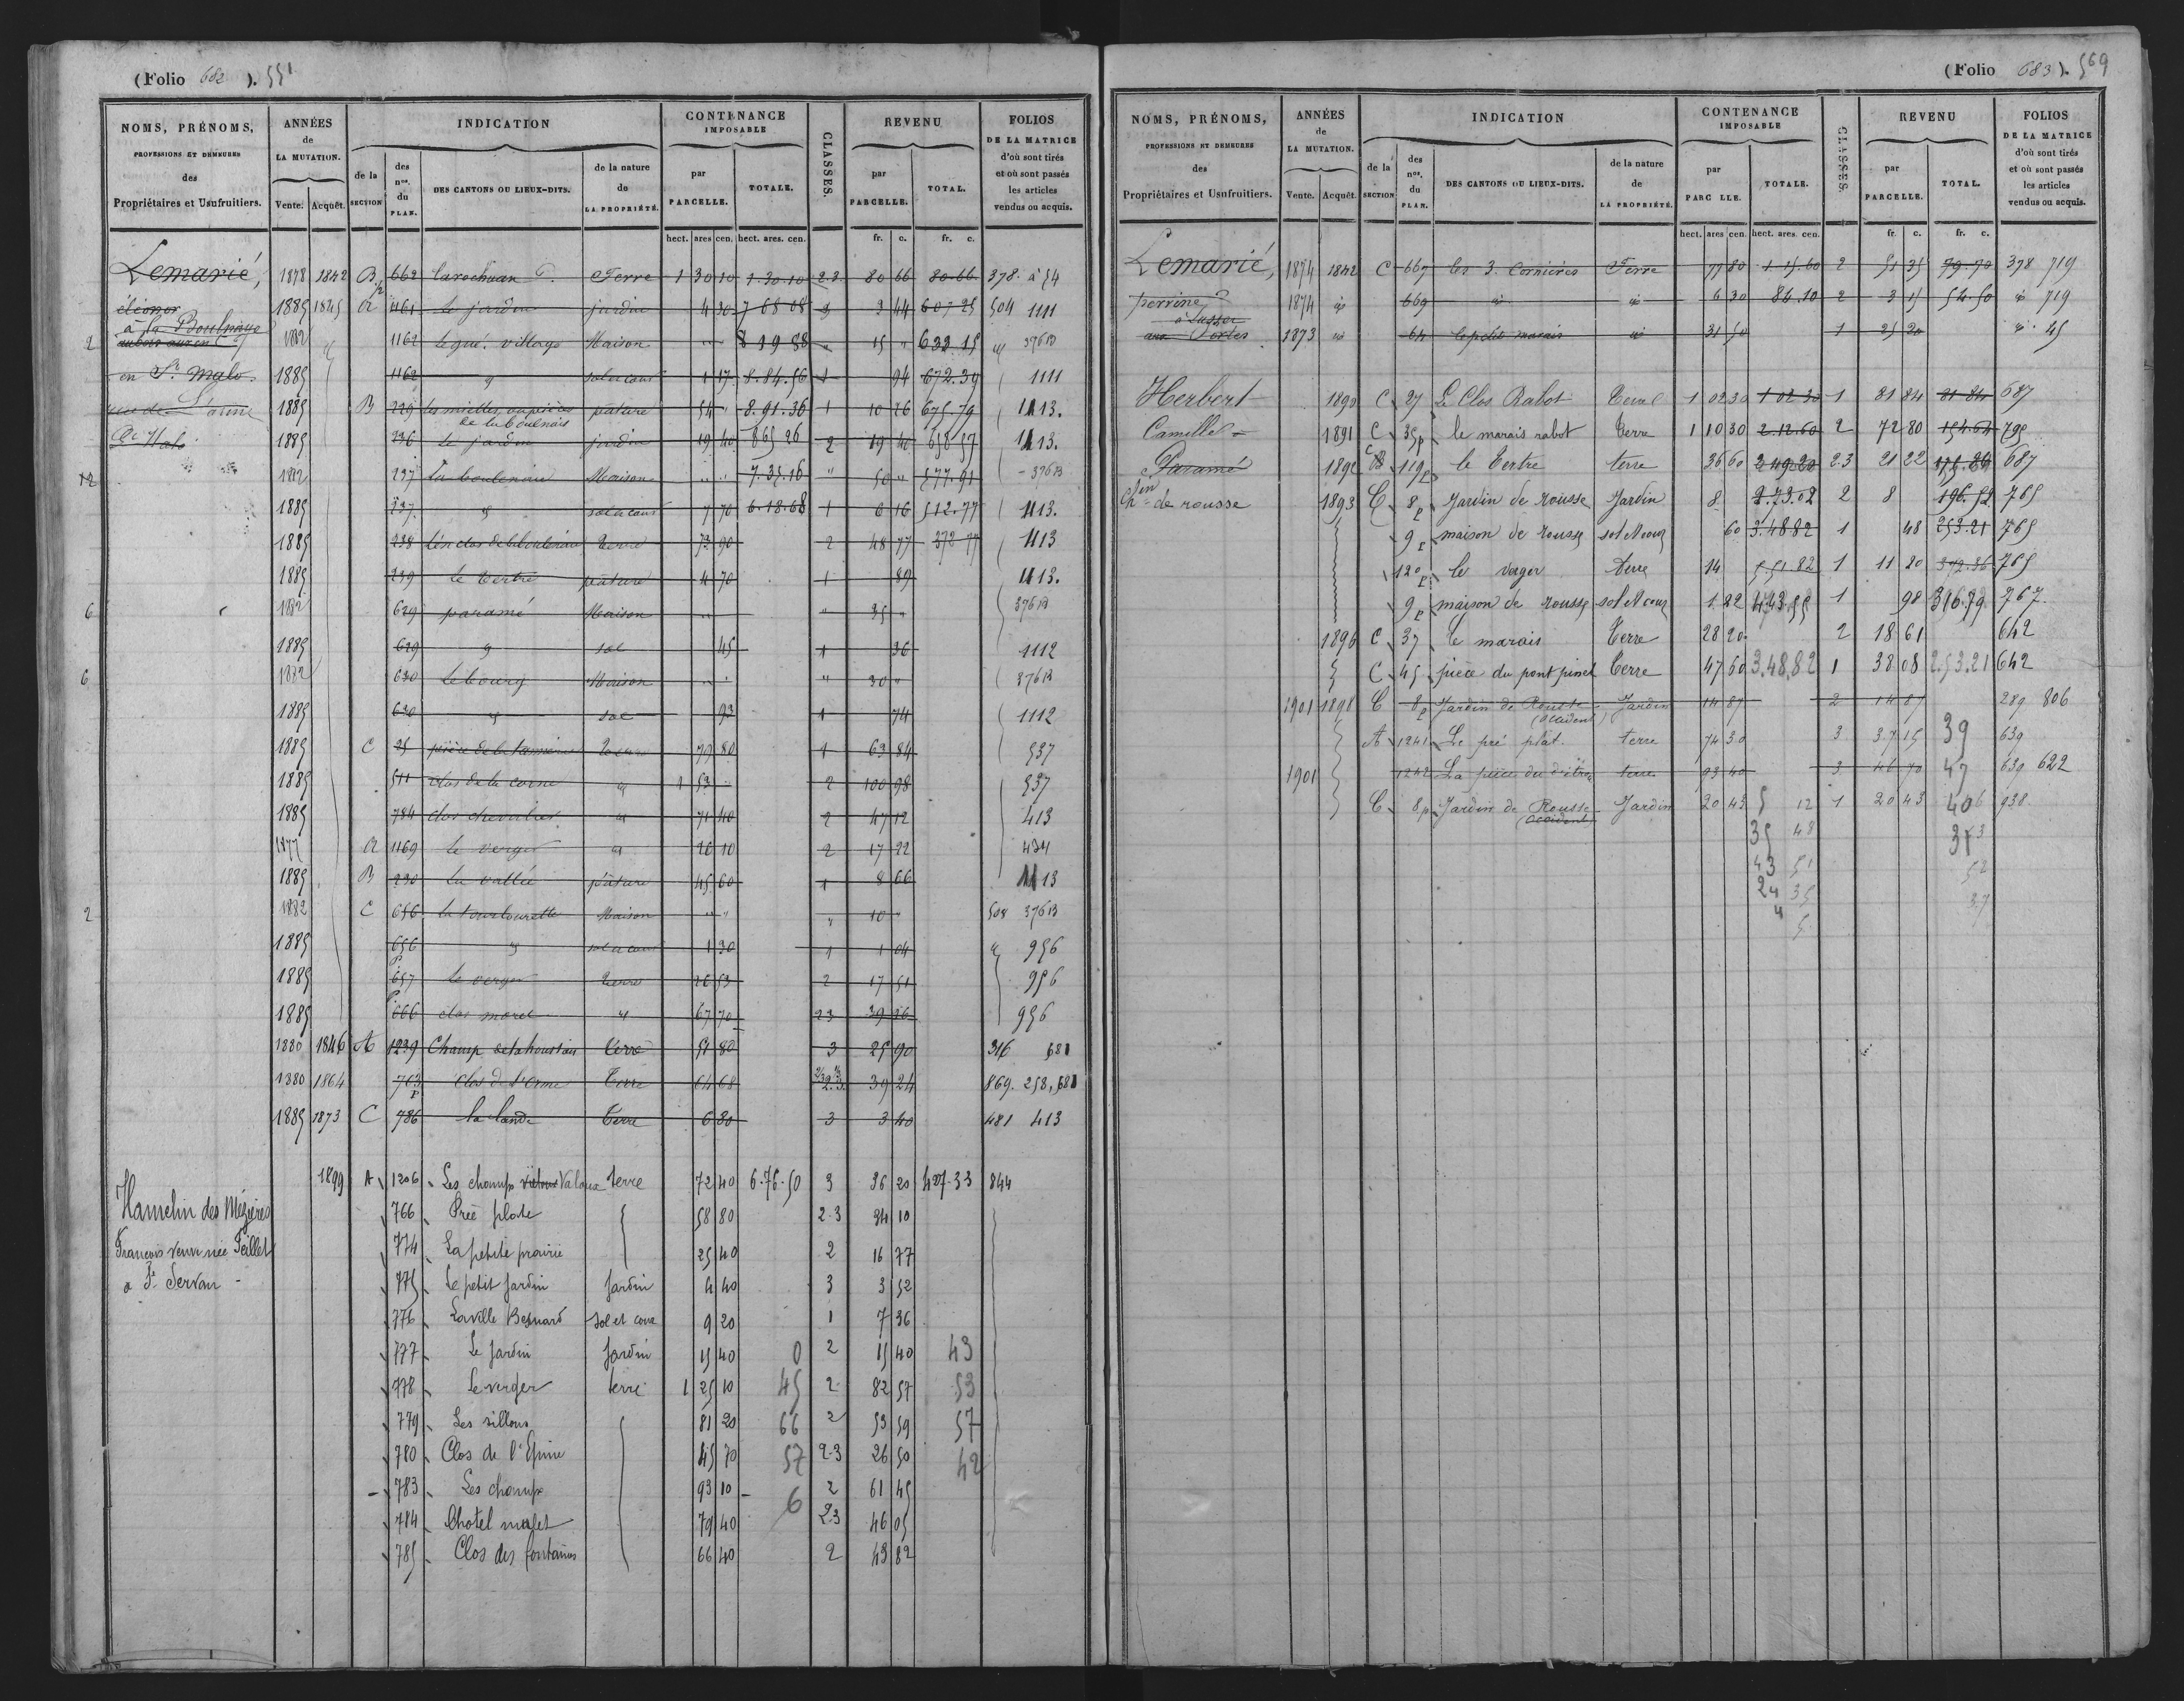 (Folio 682 ). 551
NOMS, PRÉNOMS, PROFESSIONS ET DEMEURES des Propriétaires et Usufruitiers.
ANNÉES de LA MUTATION. Vente. Acquêt.
INDICATION de la SECTION des nos. du PLAN. DES CANTONS OU LIEUX-DITS. de la nature de LA PROPRIÉTÉ.
CONTENANCE IMPOSABLE par PARCELLE. TOTALE.
CLASSES.
REVENU par PARCELLE. TOTAL.
FOLIOS DE LA MATRICE d'où sont tirés et où sont passés les articles vendus ou acquis.
hect. ares cen. hect. ares. cen. fr. c. fr. c.
Lemarié, 1878 1842 B 662 Terre 1 30 10 1.30.10 2.3. 80 66 80.66 378. à 54
éléonor 1885 1845 A 1161 le jardin jardin 4 30 7 68 08 3 44 607 25 504 1111
à la Boulnaye
2 1882 1162 le gué. village Maison " " 8 19 88 " 15 " 633 15 376B
en St. Malo. 1885 1162 sol et cour 1 17 8.84.56 1 94 672.39 1111
1885 B 229 pâture 54 " 8.91.36 1 10 26 675.79 1113.
1885 236 le jardin jardin 19 40 865 26 2 19 40 658 57 1113.
12 1882 237 la boulenais Maison " " 7.35.16 " 50 " 577.91 376B
1885 237 sol et cour 7 70 6.18.68 1 6 16 512.77 1113.
1885 238 Terre 73 90 2 48 77 372 77 1113
1885 239 le tertre pâture 4 70 1 89 1113.
6 1882 629 paramé Maison " " 35 " 376B
1885 629 sol 45 1 36 1112
6 1882 630 le bourg Maison " " " 30 " 376B
1885 630 sol 93 1 74 1112
1885 C 25 79 80 1 63 84 537
1885 511 clos de la corne 1 53 2 100 98 537
1885 784 clos chevalier 71 40 2 47 12 413
1877 A 1169 le verger 26 10 2 17 22 434
1885 B 230 la vallée pâture 45 60 1 8 66 1113
2 1882 C 656 la tourlourette Maison " " " 10 " 504 376B
1885 656 sol et cour 1 30 1 1 04 956
1885 657 le verger terre 26 53 2 17 51 956
1885 666 clos morel 67 70 2 3 39 26 956
1880 1846 A 1239 Champ de la houssais terre 51 80 3 25 90 316 681
1880 1864 763 p Clos de l'orme Terre 64 68 2.3. 39 24 869. 258, 681
1885 1873 C 786 la lande Terre 6 80 3 3 40 481 413
1899 A 1206 Les champs Valoux terre 72 40 6.76.50 3 36 20 427.33 844
Hamelin des Mézières 766 Pré plate 58 80 2.3 34 10
François veuve née Feillet 774 La petite prairie 25 40 2 16 77
à St. Servan - 775 Le petit jardin jardin 4 40 3 3 52
776 La ville Besnard sol et cour 9 20 1 7 36
777 Le jardin jardin 15 40 0 2 15 40 43
778 Le verger terre 1 25 10 45 2 82 57 53
779 Les sillons 81 20 66 2 53 59 57
780 Clos de l'Epine 45 70 57 2-3 26 50 42
783 Les champs 93 10 6 2 61 45
784 79 40 2.3 46 05
785 Clos des fontaines 66 40 2 43 82
(Folio 683 ). 569
NOMS, PRÉNOMS, PROFESSIONS ET DEMEURES des Propriétaires et Usufruitiers.
ANNÉES de LA MUTATION. Vente. Acquêt.
INDICATION de la SECTION des nos. du PLAN. DES CANTONS OU LIEUX-DITS. de la nature de LA PROPRIÉTÉ.
CONTENANCE IMPOSABLE par PARC LLE. TOTALE.
CLASSES.
REVENU par PARCELLE. TOTAL.
FOLIOS DE LA MATRICE d'où sont tirés et où sont passés les articles vendus ou acquis.
hect. ares cen. hect. ares. cen. fr. c. fr. c.
Lemarié, 1874 1842 C 667 les 3. Cornières Terre 77 80 1.15.60 2 51 35 79.70 378 719
perrine 1874 id 669 id id 6 30 84.10 2 3 15 54.50 id 719
aux Portes 1873 id 64 le petit marais id 31 50 1 25 20 id 45
Herbert 1890 C 27 Le Clos Rabot Terre 1 02 30 1 02 30 1 81 84 81 84 687
Camille 1891 C 35p le marais rabot Terre 1 10 30 2.12.60 2 72 80 154.64 795
Paramé 1892 119p le Tertre terre 36 60 2 49 20 2.3 21 22 175.86 687
Chin de rousse 1893 C 8p Jardin de rousse Jardin 8 2.73.02 2 8 196.52 765
9p maison de rousse sol et cour 60 3.4882 1 48 253.21 765
120p le verger terre 14 551.82 1 11 20 392.36 765
9p maison de rousse sol et cour 1.22 4.43.55 1 98 316.79 767.
1896 C 37 le marais Terre 28 20 2 18 61 642
C 45 pièce du pont pinel terre 47 60 3.48.82 1 38 08 2.53.21 642
1901 1898 C 8p Jardin de Rousse Jardin 14 87 2 14 87 289 806
(occident)
A 1241 Le pré plat. terre 74 30 3 37 15 39 639
1901 1242 terre 93 40 3 46 70 47 639 622
C 8p Jardin de Rousse Jardin 20 43 5 12 1 20 43 406 938
(occident)
35 48
43 51 52
24 35 37
4 5